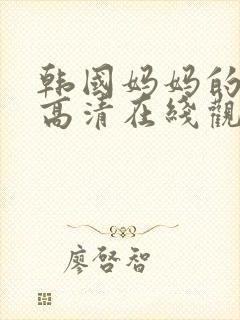 韩国妈妈的
高清在线觀
廖启智